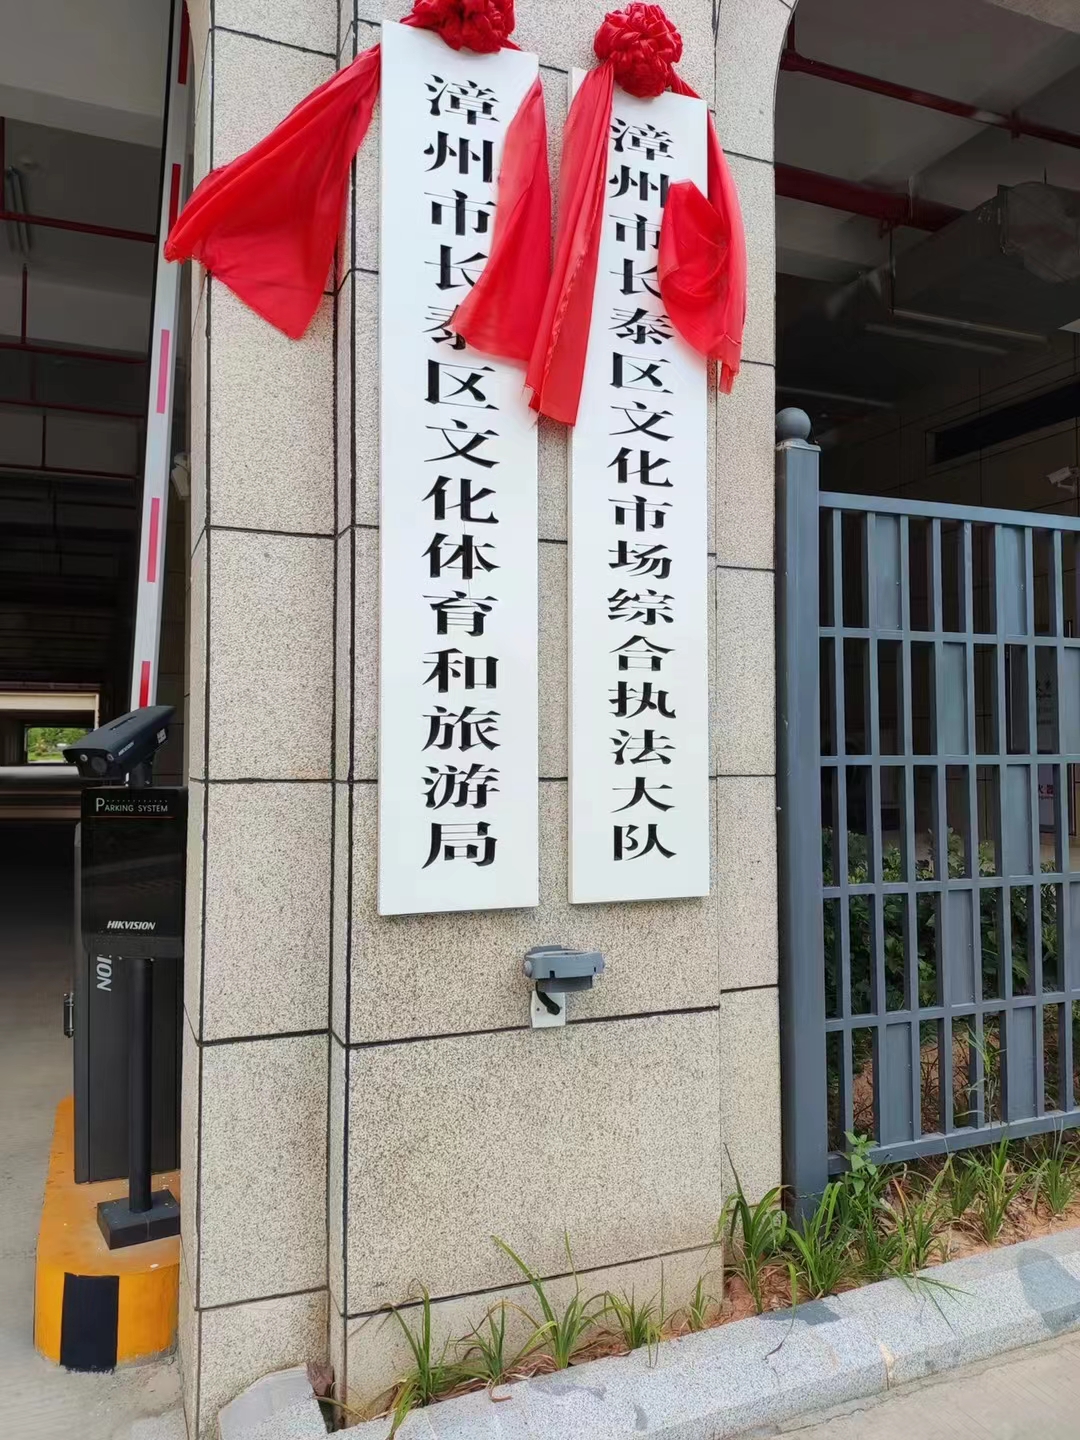 漳州市长泰区文化体育和旅游局
漳州市长泰区文化市场综合执法大队
PARKING SYSTEM
HIKVISION